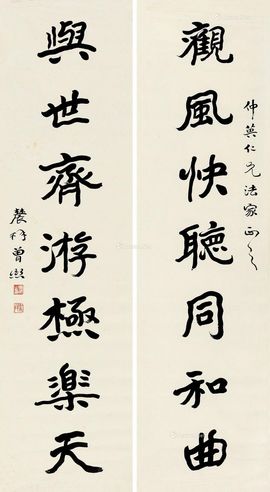 仲英仁兄法家正之
觀風快聽同和曲
與世齊游極樂天
農髯曾熙